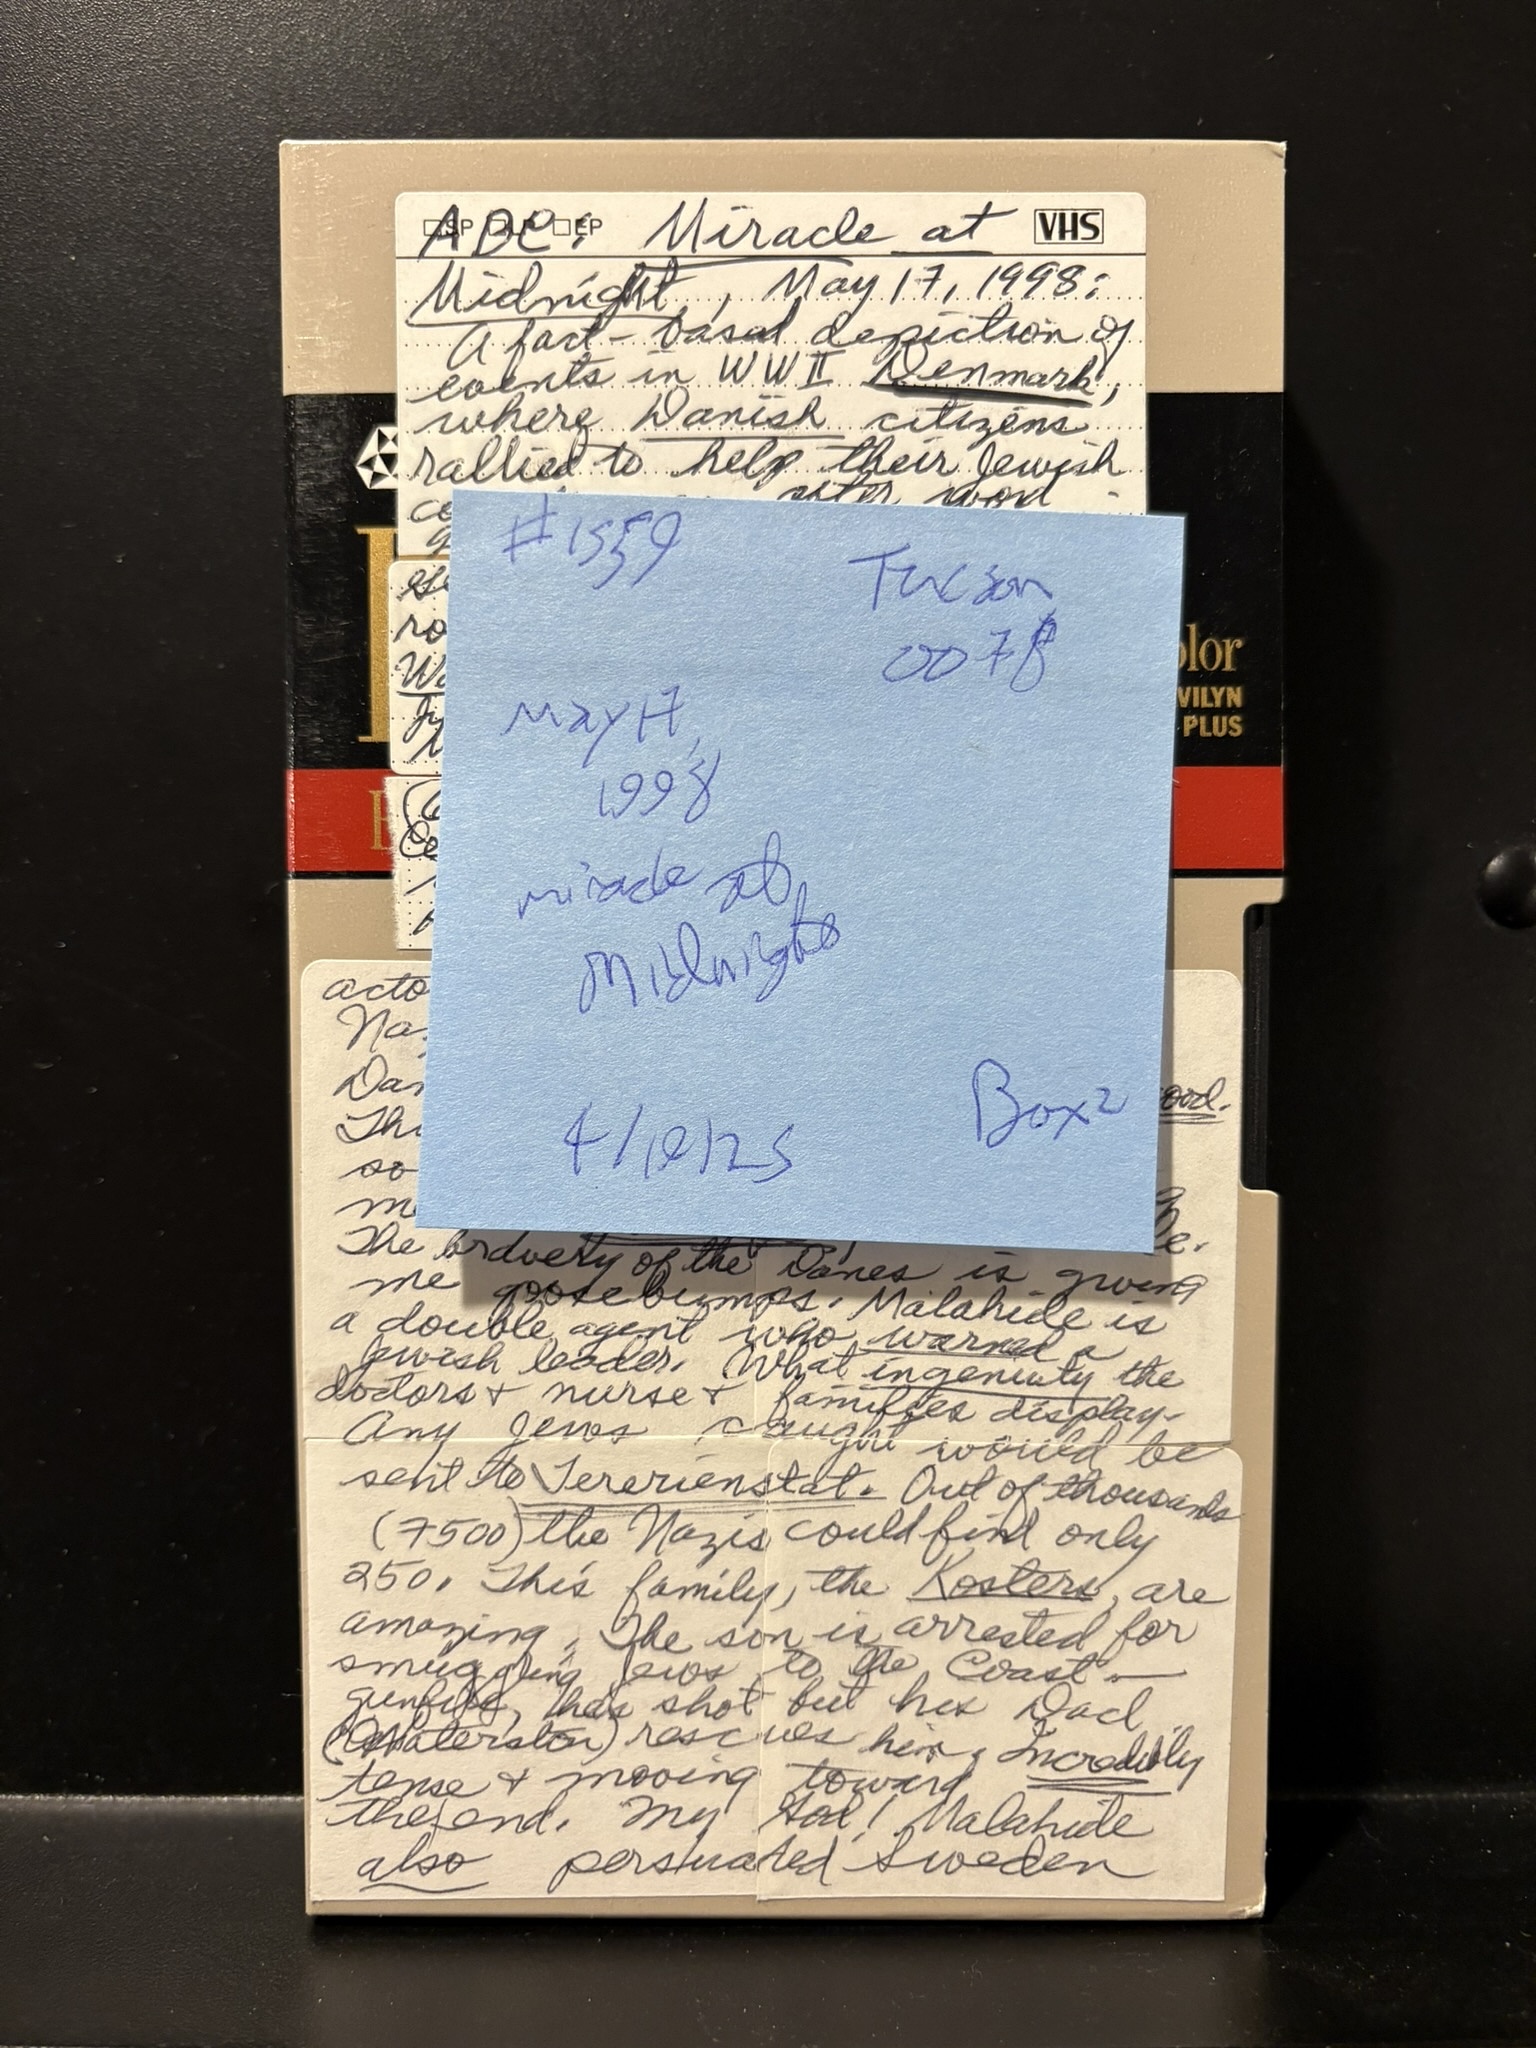 □SP □LP □EP
VHS
ABC: Miracle at
Midnight, May 17, 1998:
A fact-based depiction of
events in WWII Denmark,
where Danish citizens
rallied to help their Jewish
co
after word
se
ro
Wa
(
Ce
olor
VILYN
PLUS
#1559
Tucson
0078
May 17,
1998
miracle at
Midnight
4/10/25
Box 2
acto
Na
Dan
ood.
Thi
so
m
e.
The bravery of the Danes is giving
me goosebumps. Malahide is
a double agent who warned a
Jewish leader. What ingenuity the
doctors + nurse + families display.
Any Jews caught would be
sent to Tererienstat. Out of thousands
(7500) the Nazis could find only
250. This family, the Kosters, are
amazing. The son is arrested for
smuggling Jews to the Coast —
gunfire, he's shot but his Dad
(Waterston) rescues him. Incredibly
tense & moving toward
the end. My God! Malahide
also persuaded Sweden